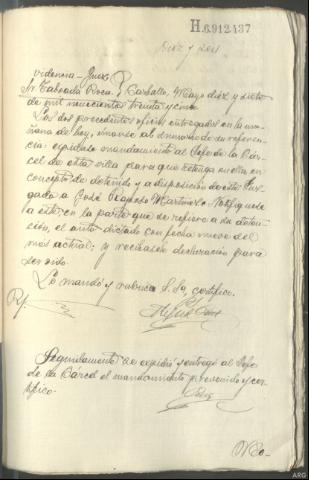 H.6.912.437
Diez y seis
videncia - Juez
Sr. Taboada Roca. Carballo, Mayo diez y siete
de mil novecientos treinta y cinco.
Los dos precedentes oficios entregados en la ma-
ñana de hoy, únanse al sumario de su referen-
cia: expídase mandamiento al Jefe de la Cár-
cel de esta villa para que retenga en ella en
concepto de detenido y a disposición de este Juz-
gado a José Martínez. Notifíquese
a este, en la parte que se refiere a su deten-
ción, el auto dictado con fecha nueve del
mes actual; y recíbasele declaración para
ser oido.
Lo mandó y rubrica S. Sª, certifico.
Seguidamente se expidió y entregó al Jefe
de la Cárcel el mandamiento prevenido y cer-
tifico.
No-
ARG